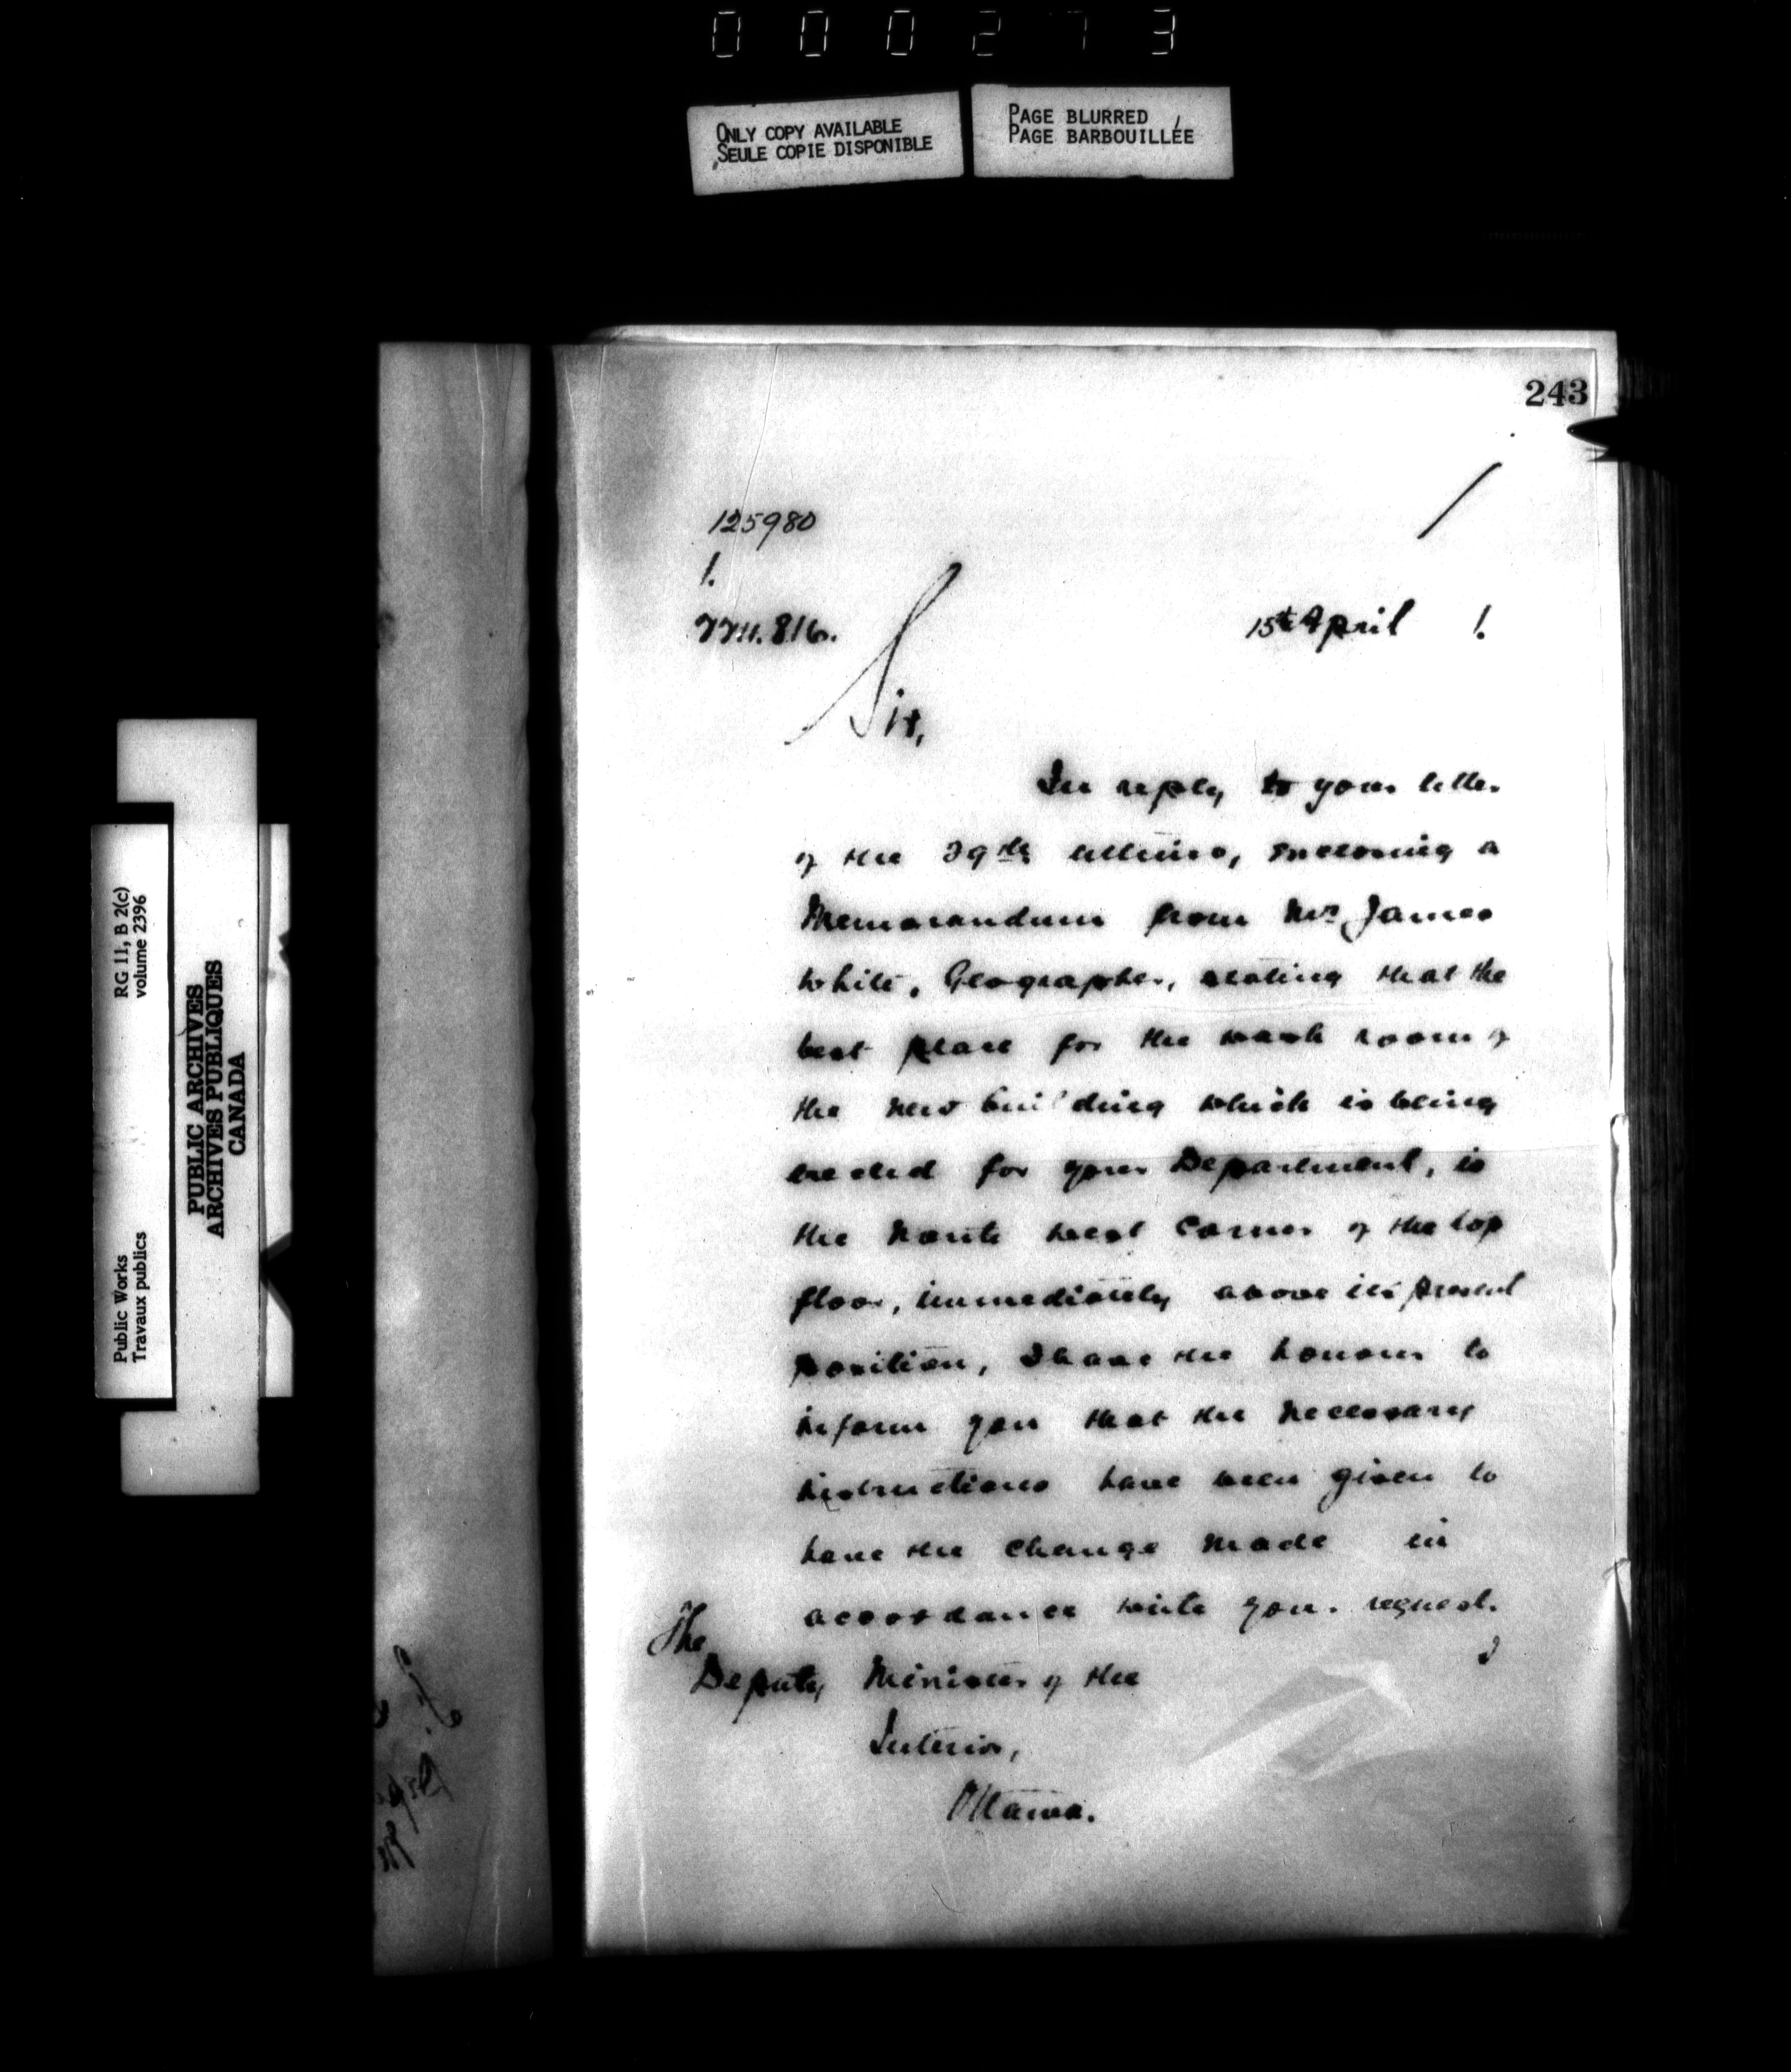 000273
ONLY COPY AVAILABLE
SEULE COPIE DISPONIBLE
PAGE BLURRED
PAGE BARBOUILLÉE
RG 11, B 2(c)
volume 2396
PUBLIC ARCHIVES
ARCHIVES PUBLIQUES
CANADA
Public Works
Travaux publics
243
125980
1.
15th April 1.
Sir,
In reply to your letter
of the 29th ultimo, enclosing a
Memorandum from Mr James
White, Geographer, stating that the
best place for the wash room of
the new building which is being
erected for your Department, is
the North West Corner of the top
floor, immediately above its present
position, I have the honour to
inform you that the necessary
instructions have been given to
have the change made in
accordance with your request.
The
Deputy Minister of the
Interior,
Ottawa.